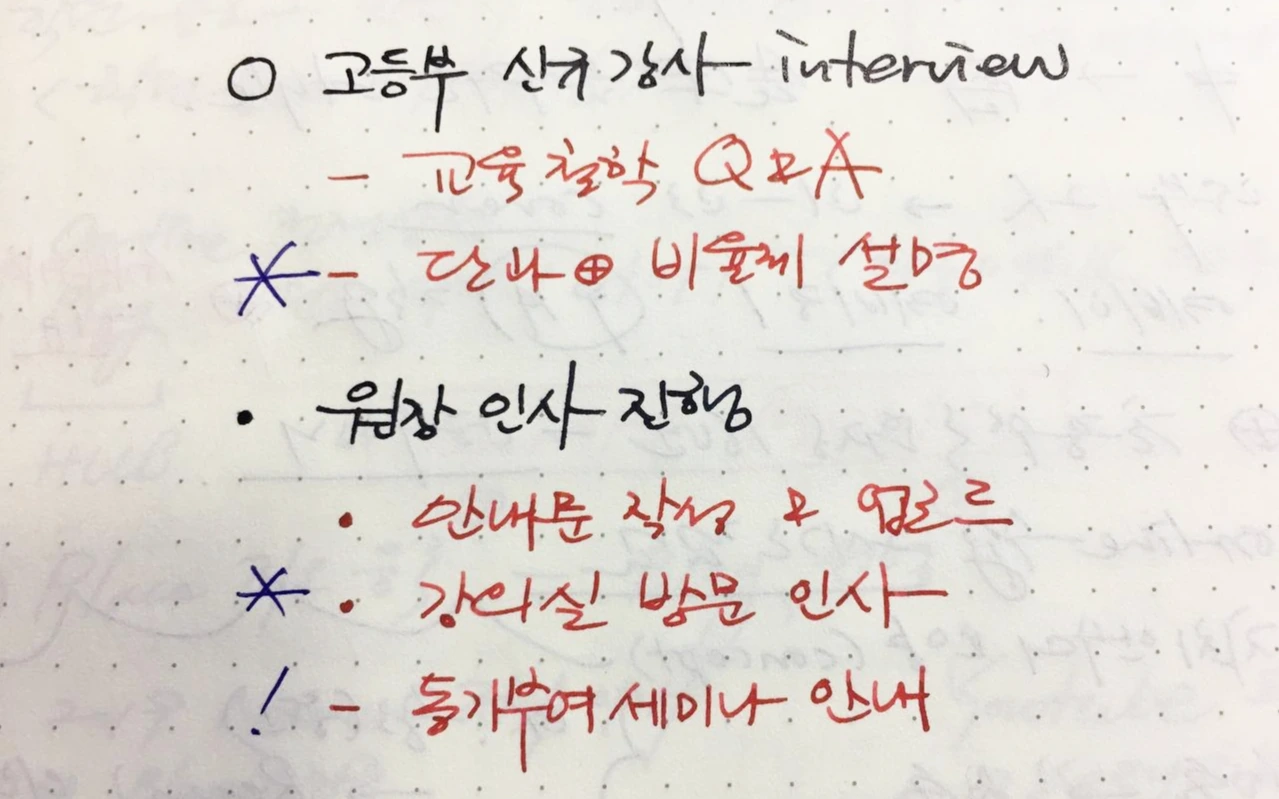 ○ 고등부 신규강사 interview
- 교육철학 Q&A
* - 단과 ⊕ 비율제 설명
• 원장 인사 진행
• 안내문 작성 & 업로드
* • 강의실 방문 인사
! - 동기부여 세미나 안내